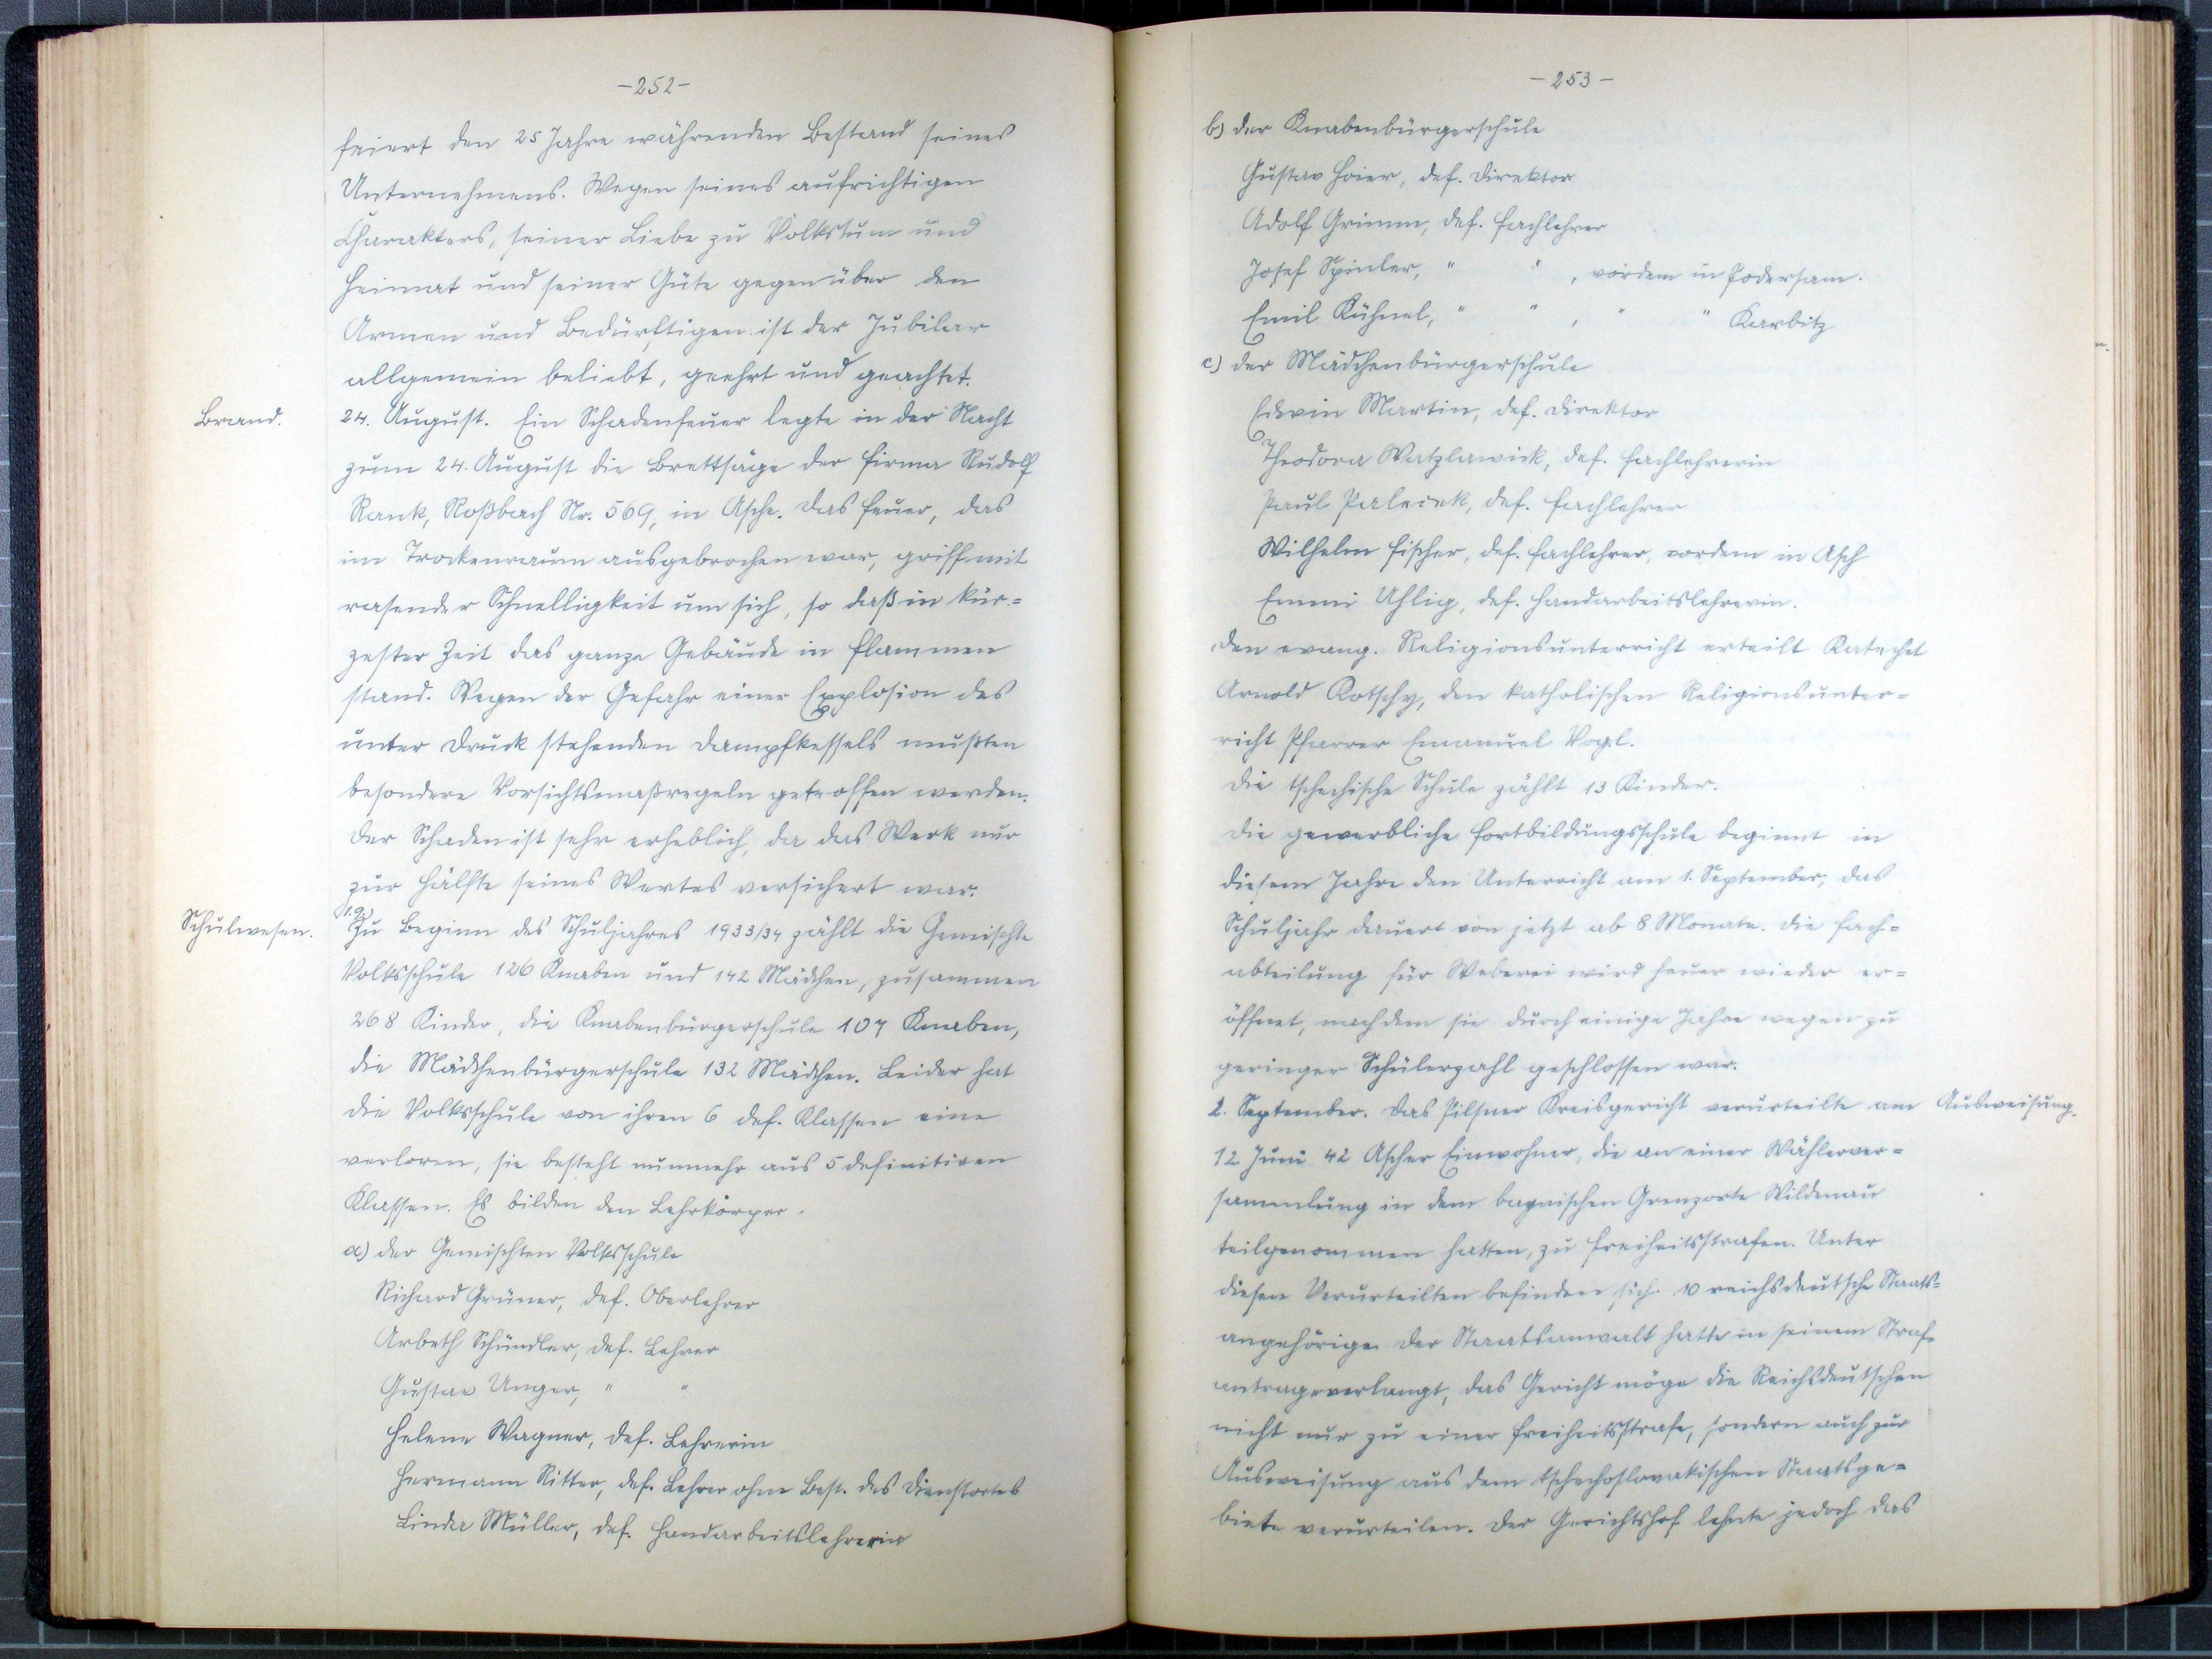 -252-
feiert den 25 Jahre währenden Bestand seines
Unternehmens. Wegen seines aufrichtigen
Charakters, seiner Liebe zu Volkstum und
Heimat und seiner Güte gegenüber den
Armen und Bedürftigen ist der Jubilar
allgemein beliebt, geehrt und geachtet.
Brand.
24. August. Ein Schadenfeuer legte in der Nacht
zum 24. August die Brettsäge der Firma Rudolf
Rank, Roßbach Nr. 569, in Asche. Das Feuer, das
im Trockenraum ausgebrochen war, griff mit
rasender Schnelligkeit um sich, so daß in kür=
zester Zeit das ganze Gebäude in Flammen
stand. Wegen der Gefahr einer Explosion des
unter Druck stehenden Dampfkessels mußten
besondere Vorsichtsmaßregeln getroffen werden.
Der Schaden ist sehr erheblich, da das Werk nur
zur Hälfte seines Wertes versichert war.
Schulwesen.
1.9.
Zu Beginn des Schuljahres 1933/34 zählt die Gemischte
Volksschule 126 Knaben und 142 Mädchen, zusammen
268 Kinder, die Knabenbürgerschule 107 Knaben,
die Mädchenbürgerschule 132 Mädchen. Leider hat
die Volksschule von ihren 6 def. Klassen eine
verloren, sie besteht nunmehr aus 5 definitiven
Klassen. Es bilden den Lehrkörper.
a) der Gemischten Volksschule
Richard Grüner, def. Oberlehrer
Arbeth Schündler, def. Lehrer
Gustav Unger, " "
Helene Wagner, def. Lehrerin
Hermann Ritter, def. Lehrer ohne Best. des Dienstortes
Linda Müller, def. Handarbeitslehrerin
-253-
b) der Knabenbürgerschule
Gustav Hoier, def. Direktor
Adolf Grimm, def. Fachlehrer
Josef Spinler, " " , vordem in Podersam.
Emil Kühnel, " " , " " Karbitz
c) der Mädchenbürgerschule
Edwin Martin, def. Direktor
Theodora Watzlawick, def. Fachlehrerin
Paul Palecek, def. Fachlehrer
Wilhelm Fischer, def. Fachlehrer, vordem in Asch
Emmi Uhlig, def. Handarbeitslehrerin.
Den evang. Religionsunterricht erteilt Katechet
Arnold Kotschy, den katholischen Religionsunter=
richt Pfarrer Emanuel Vogl.
Die tschechische Schule zählt 13 Kinder.
Die gewerbliche Fortbildungsschule beginnt in
diesem Jahre den Unterricht am 1. September, das
Schuljahr dauert von jetzt ab 8 Monate. Die Fach=
abteilung für Weberei wird heuer wieder er=
öffnet, nachdem sie durch einige Jahre wegen zu
geringer Schülerzahl geschlossen war.
2. September. Das Pilsner Kreisgericht verurteilte am
Ausweisung.
12. Juni 42 Ascher Einwohner, die an einer Wählerver=
sammlung in dem bayrischen Grenzorte Wildenau
teilgenommen hatten, zu Freiheitsstrafen. Unter
diesen Verurteilten befinden sich 10 reichsdeutsche Staats=
angehörige. Der Staatsanwalt hatte in seinem Straf=
antrage verlangt, das Gericht möge die Reichsdeutschen
nicht nur zu einer Freiheitsstrafe, sondern auch zur
Ausweisung aus dem tschechoslovakischen Staatsge=
biete verurteilen. Der Gerichtshof lehnte jedoch das